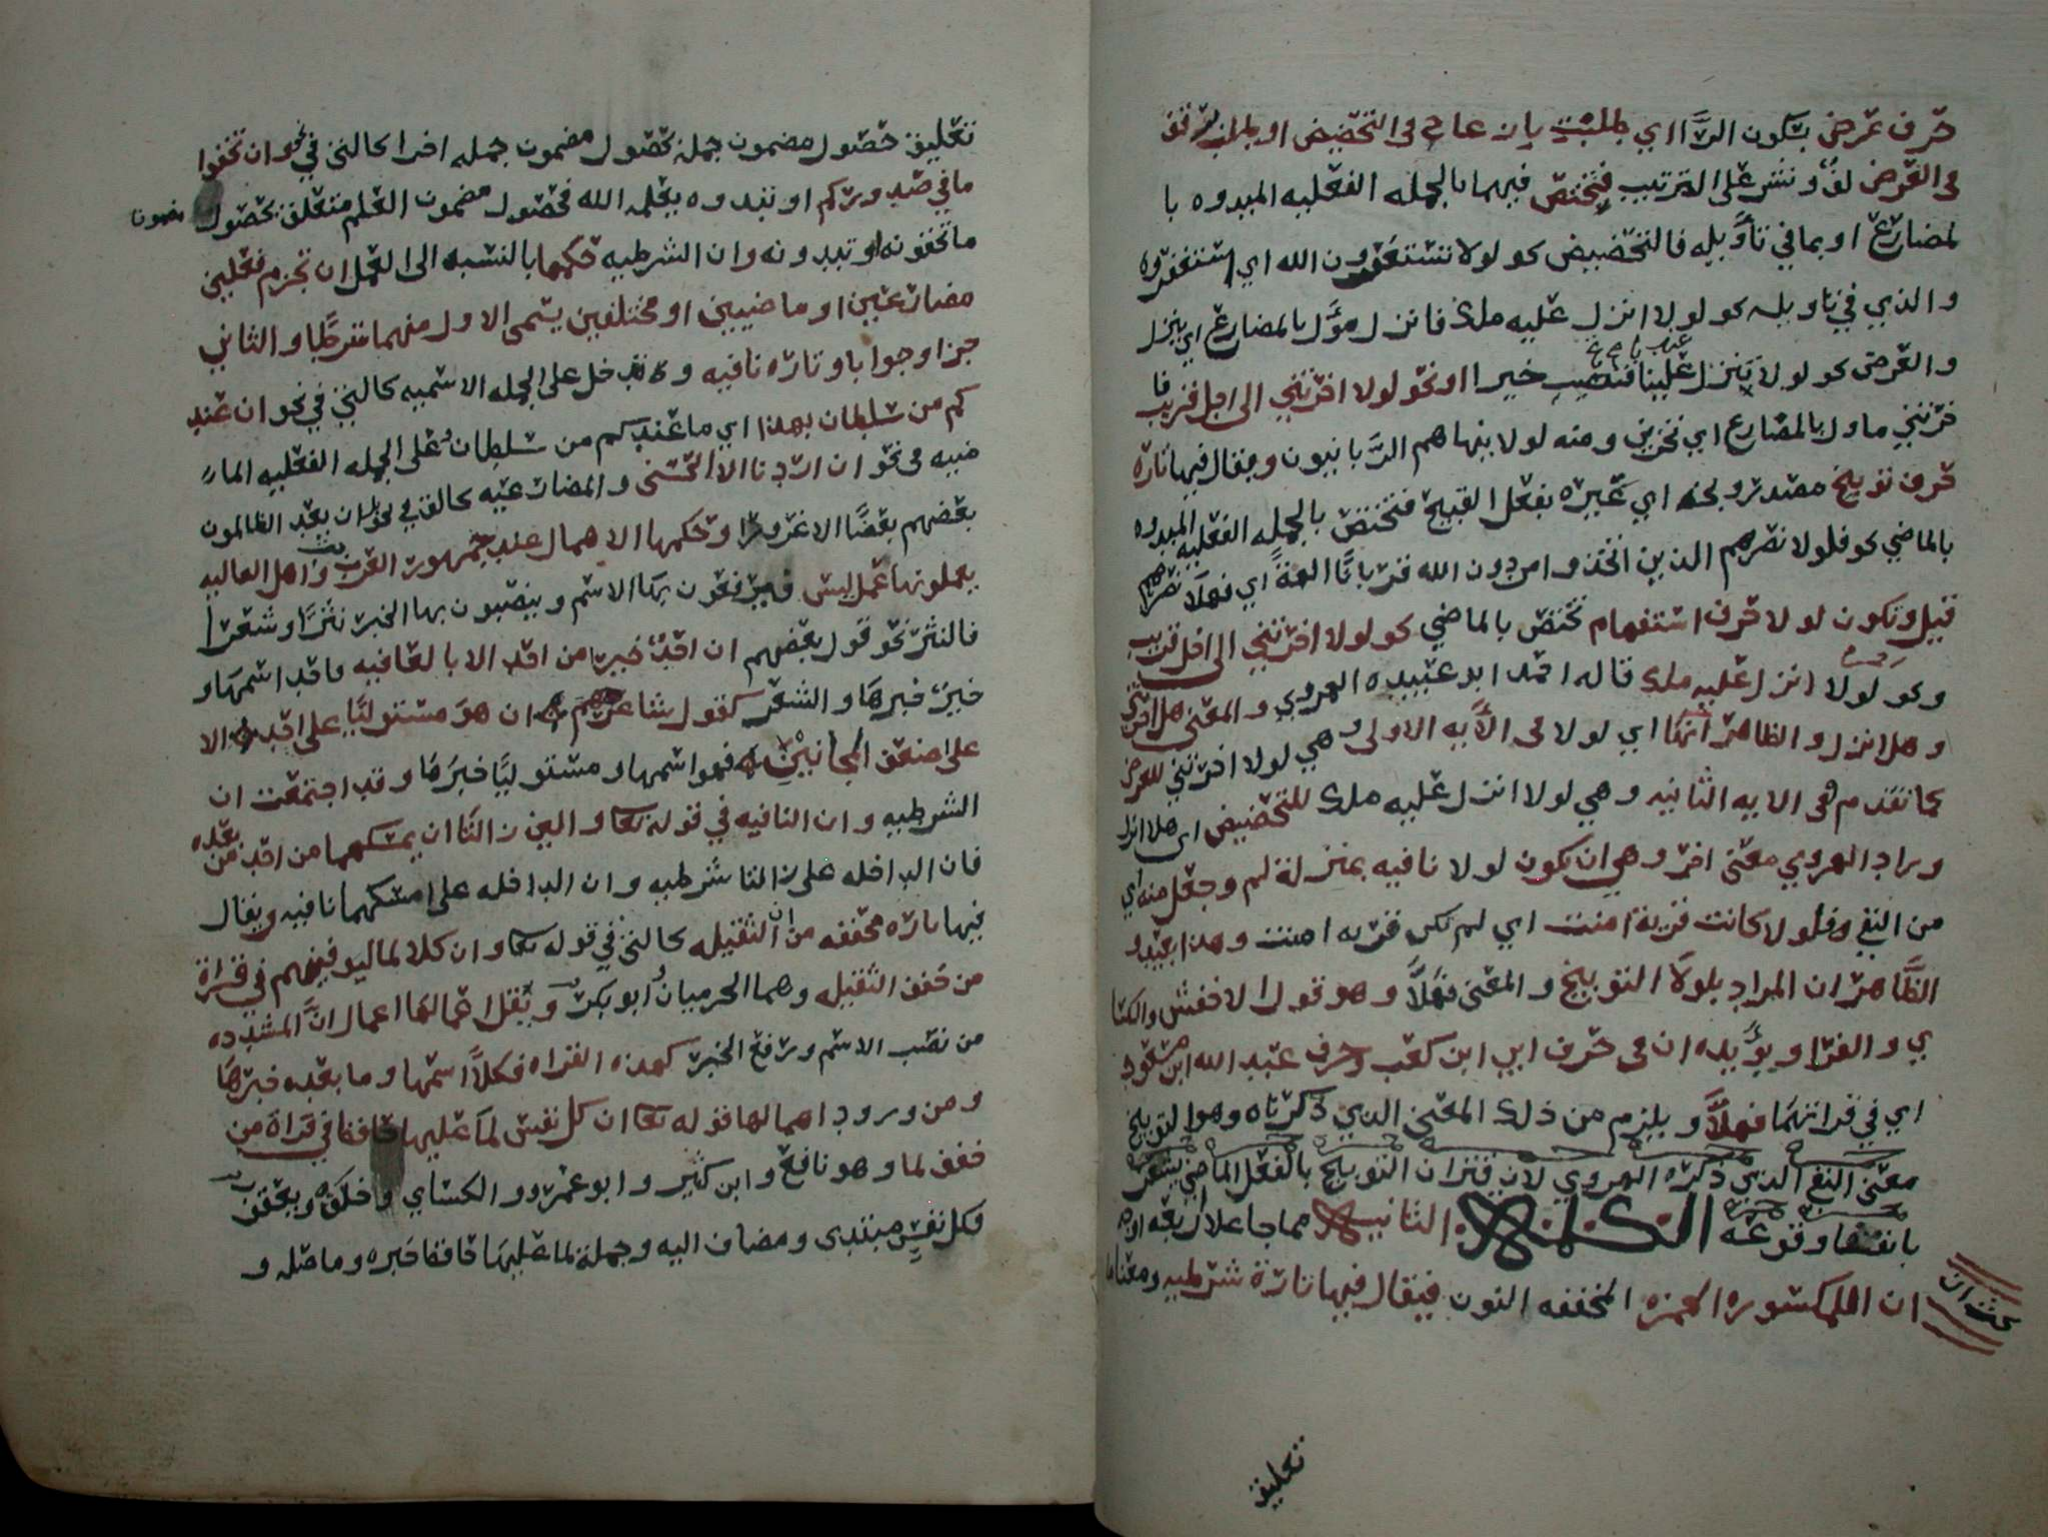 حرف عرض بسكون الراء اي طلب بلين عا في التحضيض او طلب برفق
في العرض لف ونشر على الترتيب فتختص فيهما بالجمله الفعليه المبدوه با
لمضارع او بما في تأويله فالتحضيض كو لولا تستغفرون الله اي استغفروه
والذي في تاويله كو لولا انزل عليه ملك فانزل مؤل بالمضارع اي ينزل
والعرض كو لولا تنزل علينا فتصيب خيرا او نحو لولا اخرتني الى اجل قريب فا
خرتني ماول بالمضارع اي تخرني ومنه لولا ينهاهم الربانيون ويقال فيها تارة
حرف توبيخ مصدر وبخه اي عيره بفعل القبيح فتختص بالجمله الفعليه المبدوه
بالماضي كو فلولا نصرهم الذين اتخذوا من دون الله قربانا الهة اي فهلا نصرهم
قيل وتكون لولا حرف استفهام تختص بالماضي كو لولا اخرتني الى اجل قريب
وكو لولا انزل عليه ملك قاله احمد ابو عبيده الهروي والمعنى هل اخرتني
وهل انزل والظاهر انها اي لولا في الأيه الاولى وهي لولا اخرتني للعرض
كما تقدم وفي الايه الثانيه وهي لولا انزل عليه ملك للتحضيض اي هلا انزل
وزاد الهروي معنى اخر وهي ان تكون لولا نافيه بمنزلة لم وجعل منه اي
من النفي فلولا كانت قرية امنت اي لم تكن قريه امنت وهذا بعيد و
الظاهر ان المراد بلولا التوبيخ والمعنى فهلا وهو قول الاخفش والكسا
ي والفرا ويؤيده ان في حرف ابي ابن كعب وحرف عبد الله ابن مسعود
اي في قراتهما فهلا ويلزم من ذلك المعنى الذي ذكرناه وهو التوبيخ
معنى النفي الذي ذكره الهروي لان اقتران التوبيخ بالفعل الماضي يشعر
بانتفا وقوعه الكلمة الثانيه مما جا على اربعه اوجه
ان المكسوره الهمزه المخففه النون فيقال فيها تارة شرطيه ومعناها
بحث ان
تعليق
تعليق حصول مضمون جملة بحصول مضمون جمله اخرا كالتي في نحو ان تخفوا
ما في صدوركم او تبدوه يعلمه الله فحصول مضمون العلم متعلق بحصول مضمون
ما تخفونه او تبدونه وان الشرطيه حكمها بالنسبه الى العمل ان تجزم فعلين
مضارعين او ماضيين او مختلفين يسمى الاول منهما شرطا والثاني
جزا وجوابا وتاره نافيه وتدخل على الجمله الاسميه كالتي في نحو ان عند
كم من سلطان بهذا اي ما عندكم من سلطان وعلى الجمله الفعليه الما
ضيه في نحو ان اردنا الا الحسنى والمضارعيه كالتي في نحو ان يعد الظالمون
بعضهم بعضا الا غرورا وحكمها الاهمال عند جمهور العرب واهل العاليه
يعملونها عمل ليس فيرفعون بها الاسم وينصبون بها الخبر نثرا وشعرا
فالنثر نحو قول بعضهم ان احد خيرا من احد الا بالعافيه فاحد اسمها و
خيرا خبرها والشعر كقول شاعرهم ان هو مستوليا على احد الا
على اضعف المجانين فهو اسمها ومستوليا خبرها وقد اجتمعت ان
الشرطيه وان النافيه في قوله تعالى ولئن زالتا ان امسكهما من احد من بعده
فان الداخله على زالتا شرطيه وان الداخله على امسكهما نافيه ويقال
فيها تاره مخففه من ان الثقيله كالتي في قوله تعالى وان كلا لما ليوفينهم في قراة
من خفف الثقيله وهما الحرميان وابو بكر ويقل اهمالها اعمال ان المشدده
من نصب الاسم ورفع الخبر كهذه القراه فكلا اسمها وما بعده خبرها
ومن ورود اهمالها قوله تعالى ان كل نفس لما عليها حافظ في قراة من
خفف لما وهو نافع وابن كثير وابو عمرو والكساي وخلف ويعقوب
فكل نفس مبتدى ومضاف اليه وجملة لما عليها حافظ خبره وما صله و